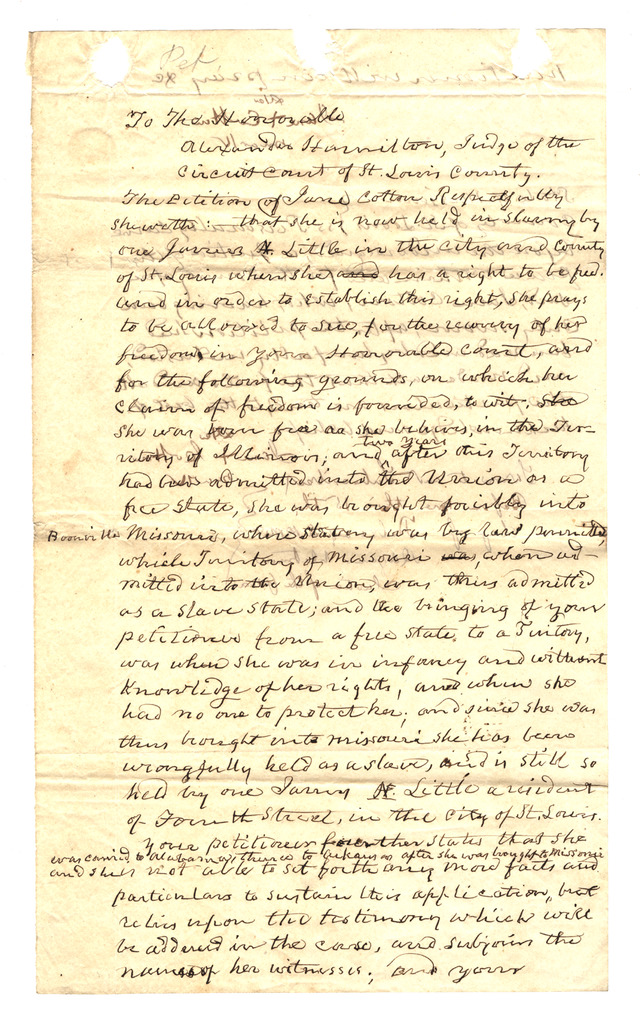 Pet
To The Honorable
Alexander Hamilton, Judge of the
Circuit Court of St. Louis County.
The Petition of Jane Cotton Respectfully
sheweth: that she is now held in slavery by
one James H. Little in the city and County
of St. Louis where she and has a right to be free.
and in order to establish this right, she prays
to be allowed to sue, for the recovery of her
freedom, in your Honorable Court, and
for the following grounds, on which her
claim of freedom is founded, to wit, She
She was born free as she believes, in the Ter-
ritory of Illinois; and two years after this Territory
had been admitted into the Union as a
free State, she was brought forcibly into
Boonville Missouri, where slavery was by law permitted,
which Territory of Missouri was, when ad-
mitted into the Union, was thus admitted
as a slave state; and the bringing of your
petitioner from a free state to a Territory,
was when she was in infancy and without
Knowledge of her rights, and when she
had no one to protect her; and since she was
thus brought into Missouri she has been
wrongfully held as a slave, and is still so
held by one James H. Little a resident
of Fourth Street, in the City of St. Louis.
Your petitioner further states that she
was carried to Alabama & thence to Arkansas after she was brought to Missouri
and she is not able to set forth any more facts and
particulars to sustain this application, but
relies upon the testimony which will
be adduced in the case, and subjoins the
names of her witnesses; and your